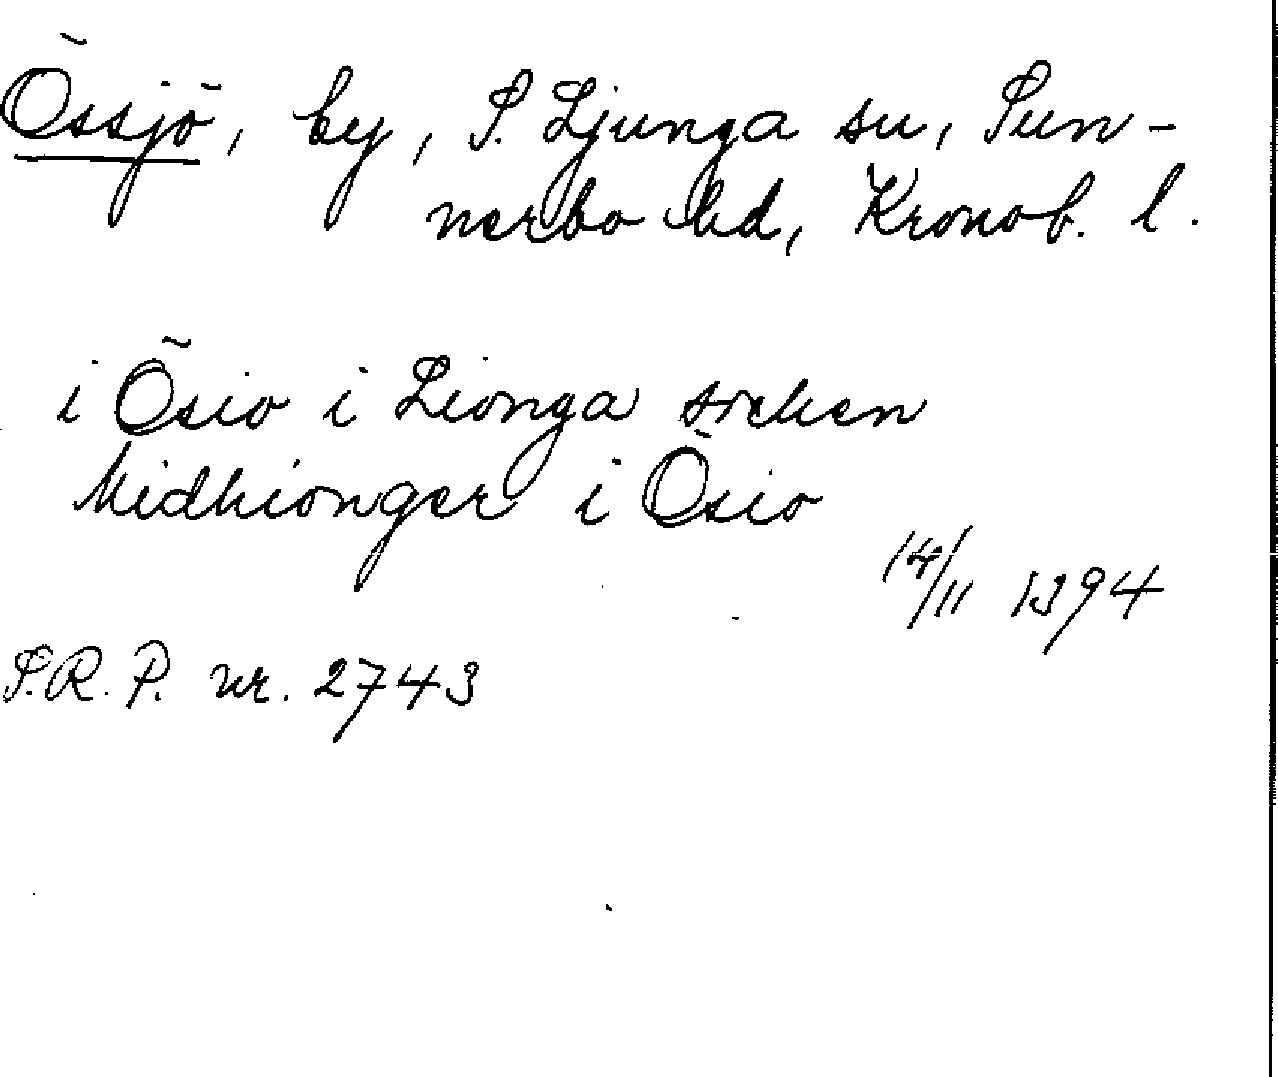 Össjö, by, S. Ljunga sn, Sun-
nerbo hd, Kronob. l.
i Ösio i Lionga soken
Midhionger i Ösio
14/11 1394
S.R.P. nr. 2743